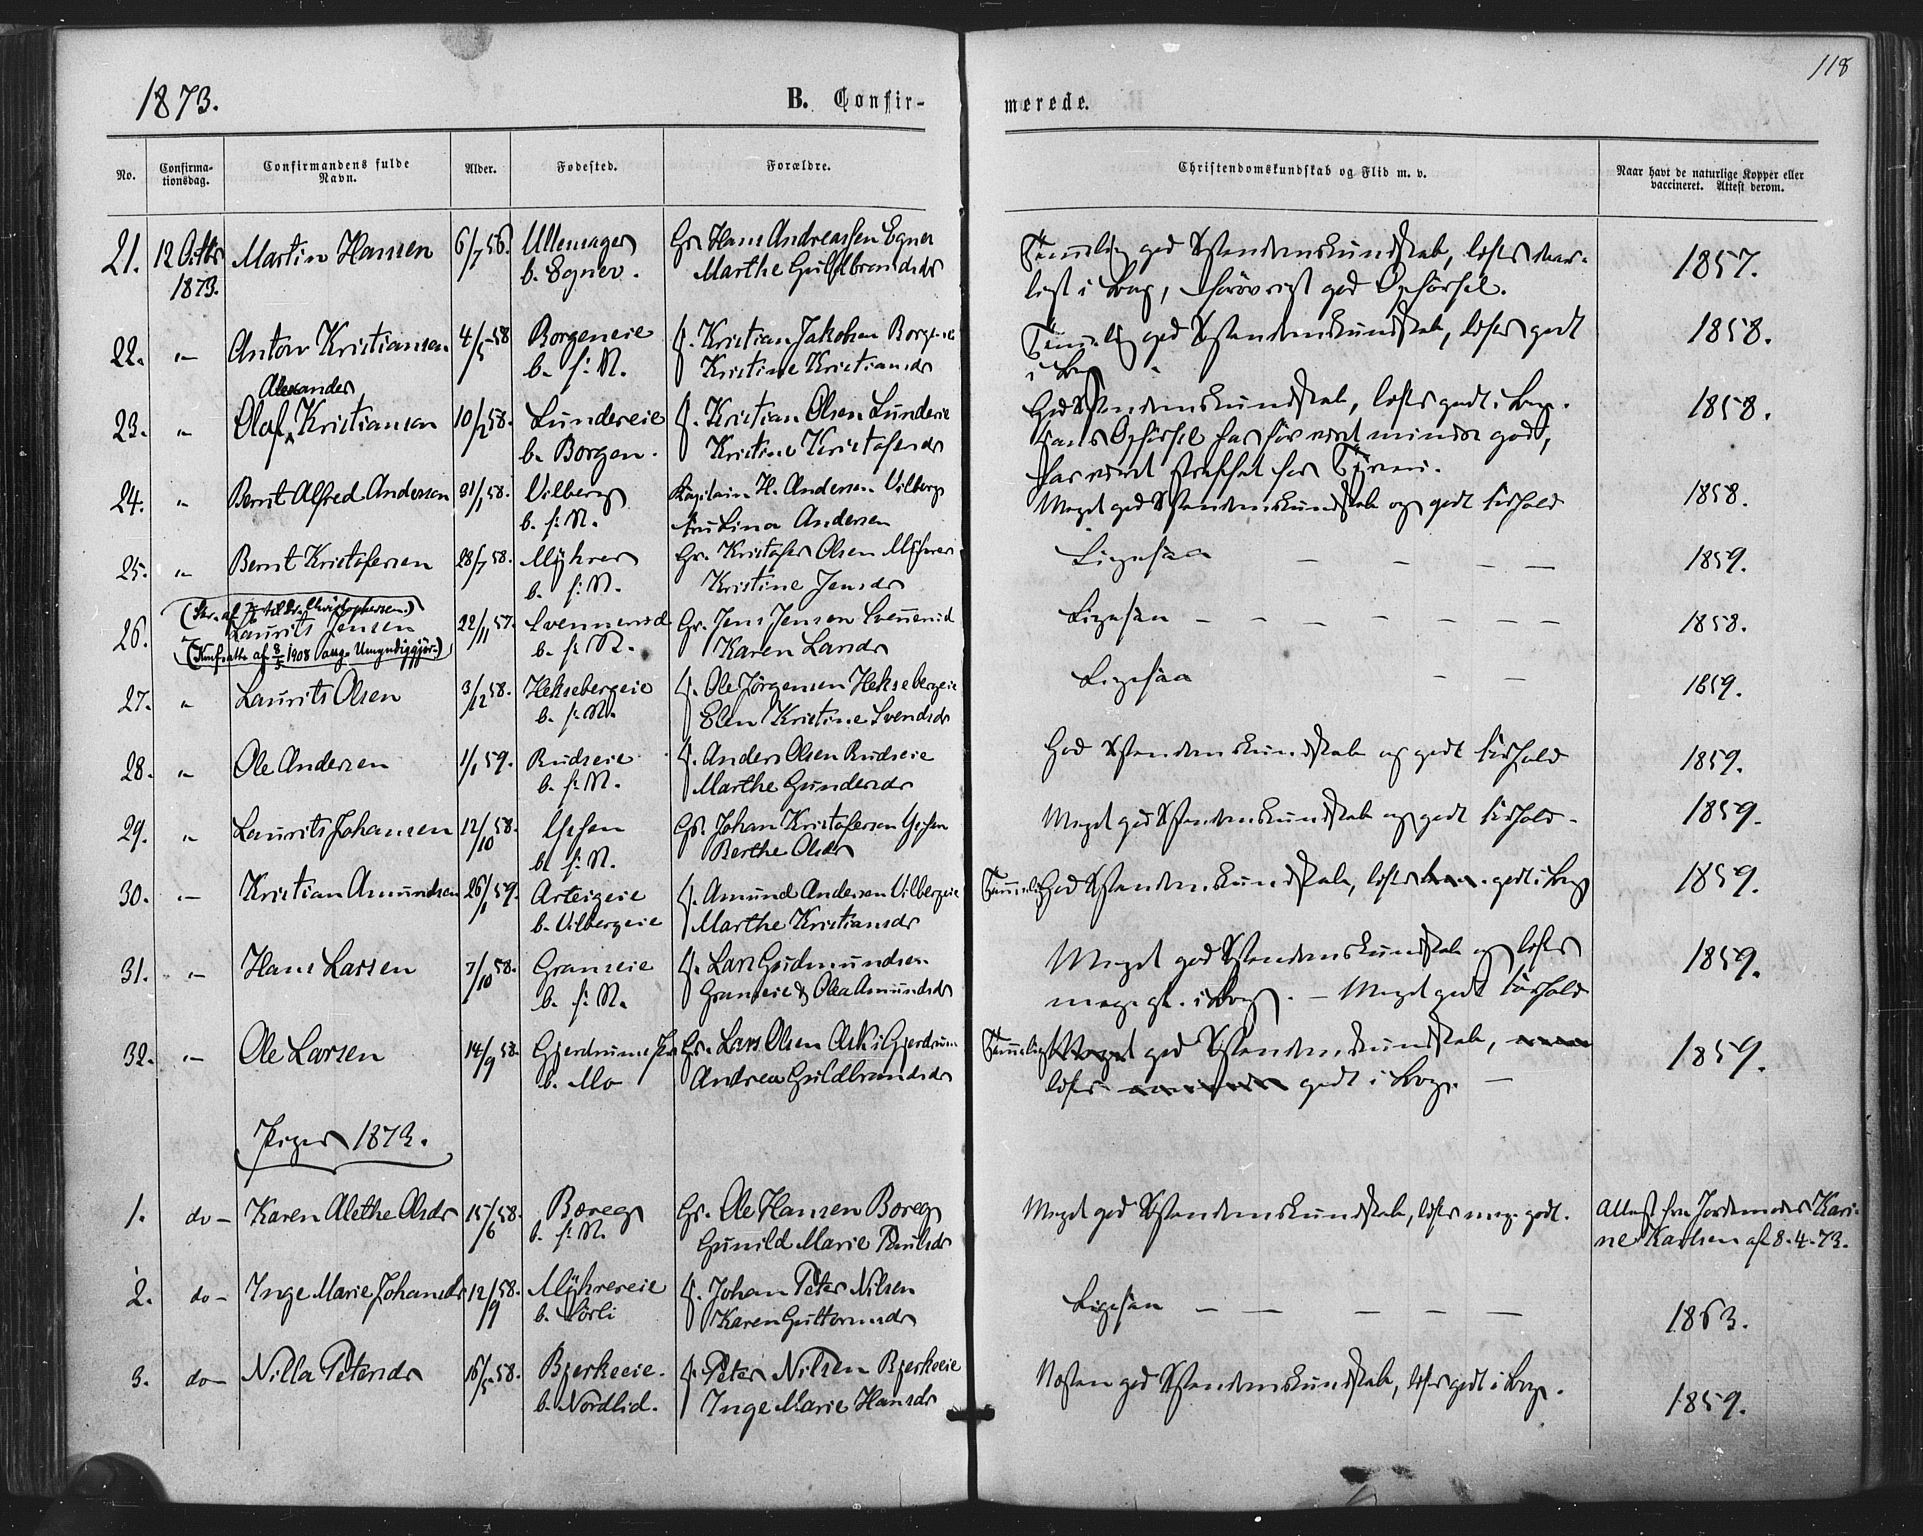 118
1873.
B. Confir-
merede.
No.
Confirma-
tionsdag.
Confirmandens fulde
Navn.
Alder.
Fødested.
Forældre.
Christendomskundskab og Flid m. v.
Naar havt de naturlige Kopper eller
vaccineret. Attest derom.
21. 12 Octbr Martin Hansen 6/7 56. Ullensager Gr. Hans Andreassen Egner
1873. b. Egner. Marthe Guldbrandsdr
Temmelig god Xstendomskundskab, læser maa-
ligt i Bog, forøvrigt god Opførsel.
1857.
22. "- Anton Kristiansen 4/5 58 Borgeneie F. Kristian Jakobsen Borgeneie
b. f: N. Kristine Kristiansdr
Temmelig god Xstendomskundskab, læser godt
i Bog
1858.
Alexander
23. " Olaf Kristiansen 10/2 58. Lundereie F. Kristian Olsen Lunderie
b. Borgen. Kristine Kristofersdr
God Xstendomskundskab, læser godt i Bog.
Hans Opførsel har før været mindre god,
har været straffet for Tyveri.
1858.
24. " Bernt Alfred Andersen 31/1 58. Vilberg Kapitain H. Andersen Vilberg
b. f: N. Fru Lina Andersen
Meget god Xstendomskundskab og godt Forhold
1858.
25. " Bernt Kristofersen 28/7 58. Myhrer Gr. Kristofer Olsen Myhrer
b. f: N. Kristine Jensdr
Ligesaa — — — —
1859.
Christophersen.)
26. Laurits Jensen 22/11 57. Svennerud Gr. Jens Jensen Svenerud
1908 ang. Umyndiggjør.) b. f: N. Karen Larsdr
Ligesaa — — — — — — —
1858.
27. " Laurits Olsen 3/12 58. Heksebergeie F. Ole Jørgensen Heksebergeie
b. f: N. Elen Kristine Svendsdr
Ligesaa — —
1859.
28. " Ole Andersen 1/1 59. Rudseie F. Anders Olsen Rudseie
b. f: N. Marthe Gundersdr
God Xstendomskundskab og godt Forhold
1859.
29. " Laurits Johansen 12/10 58. Johan Kristofersen
b. f: N. Berthe Olsdr
Meget god Xstendomskundskab og godt Forhold-
1859.
30. "- Kristian Amundsen 26/1 59. Arteigeie F. Amund Andersen Vilbergeie
b. Vilbergeie Marthe Kristiansdr
Temmelig God Xstendomskundskab, læser godt i Bog
1859.
31. "- Hans Larsen 7/10 58. Granseie F. Lars Gudmundsen
b. f: N. Granseie & Olea Amundsdr
Meget god Xstendomskundskab og læser
meg. gt. i Bog. — Meget godt Forhold
1859.
32. "- Ole Larsen 14/9 58. Gjerdrums Gr. Lars Olsen Ask i Gjerdrum
b. Mo Andrea Guldbrandsdr
Temmelig Meget god Xstendomskundskab,
læser godt i Bog. —
1859.
Piger 1873.
1. do- Karen Alethe Olsdr 15/6 58. Boreg Gr. Ole Hansen Boreg
b. f: N. Gunild Marie Paulsdr
Meget god Xstendomskundskab, læser meg. godt.
Attest fra Jordemoder Kari-
ne Karlsen af 8-4-73.
2. do- Inge Marie Johansdr 12/9 58. Myhrereie F. Johan Peter Nilsen
b. Sørli Karen Guttormsdr
Ligesaa — — — — —
1863.
3. do- Nilla Petersdr 16/5 58. Bjerkeeie. F. Peter Nilsen Bjerkeeie
b. Nordlid. Inge Marie Hansdr
Næsten god Xstendomskundskab, læser godt i Bog.
1859.